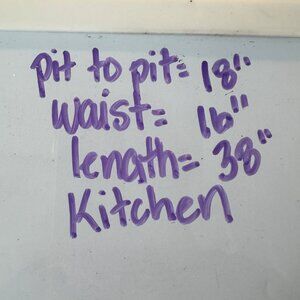 pit to pit= 18"
waist= 16"
length= 38"
Kitchen